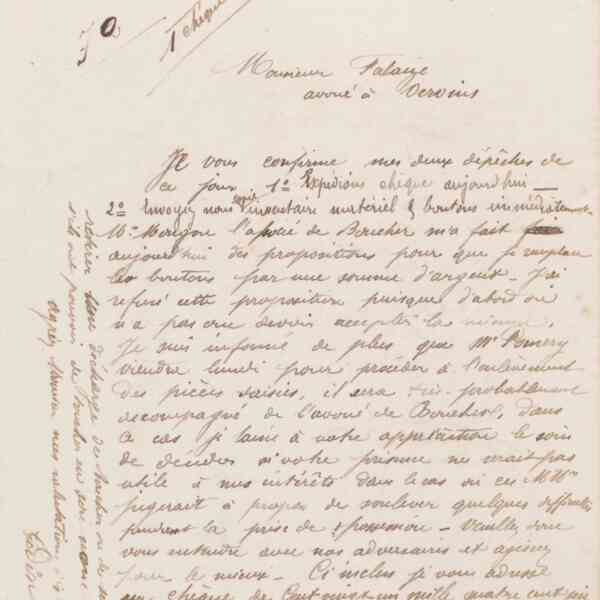 1 chèque
Monsieur Falaize
avoué à Vervins
Je vous confirme mes deux dépêches de
ce jour 1º Expédions chèque aujourd'hui —
2º Envoyez nous copie inventaire matériel & boutons immédiatement
Mr l'associé de Boucher m'a fait
aujourd'hui des propositions pour que je remplace
les boutons par une somme d'argent. J'ai
refusé cette proposition puisque d'abord on
n'a pas cru devoir accepter la mienne.
Je suis informé de plus que Mr
viendra lundi pour procéder à l'enlèvement
des pièces saisies, il sera très probablement
accompagné de l'avoué de Boucher, dans
ce cas je laisse à votre appréciation le soin
de décider si votre présence ne serait pas
utile à nos intérêts dans le cas où ces MM
jugerait à propos de soulever quelques difficultés
pendant la prise de possession — Veuillez donc
vous entendre avec nos adversaires et agissez
pour le mieux — Ci inclus je vous adresse
un chèque de cent mille quatre cent
retirer une décharge de Boucher ou de
s'ils ont pouvoir de Boucher
nos salutations